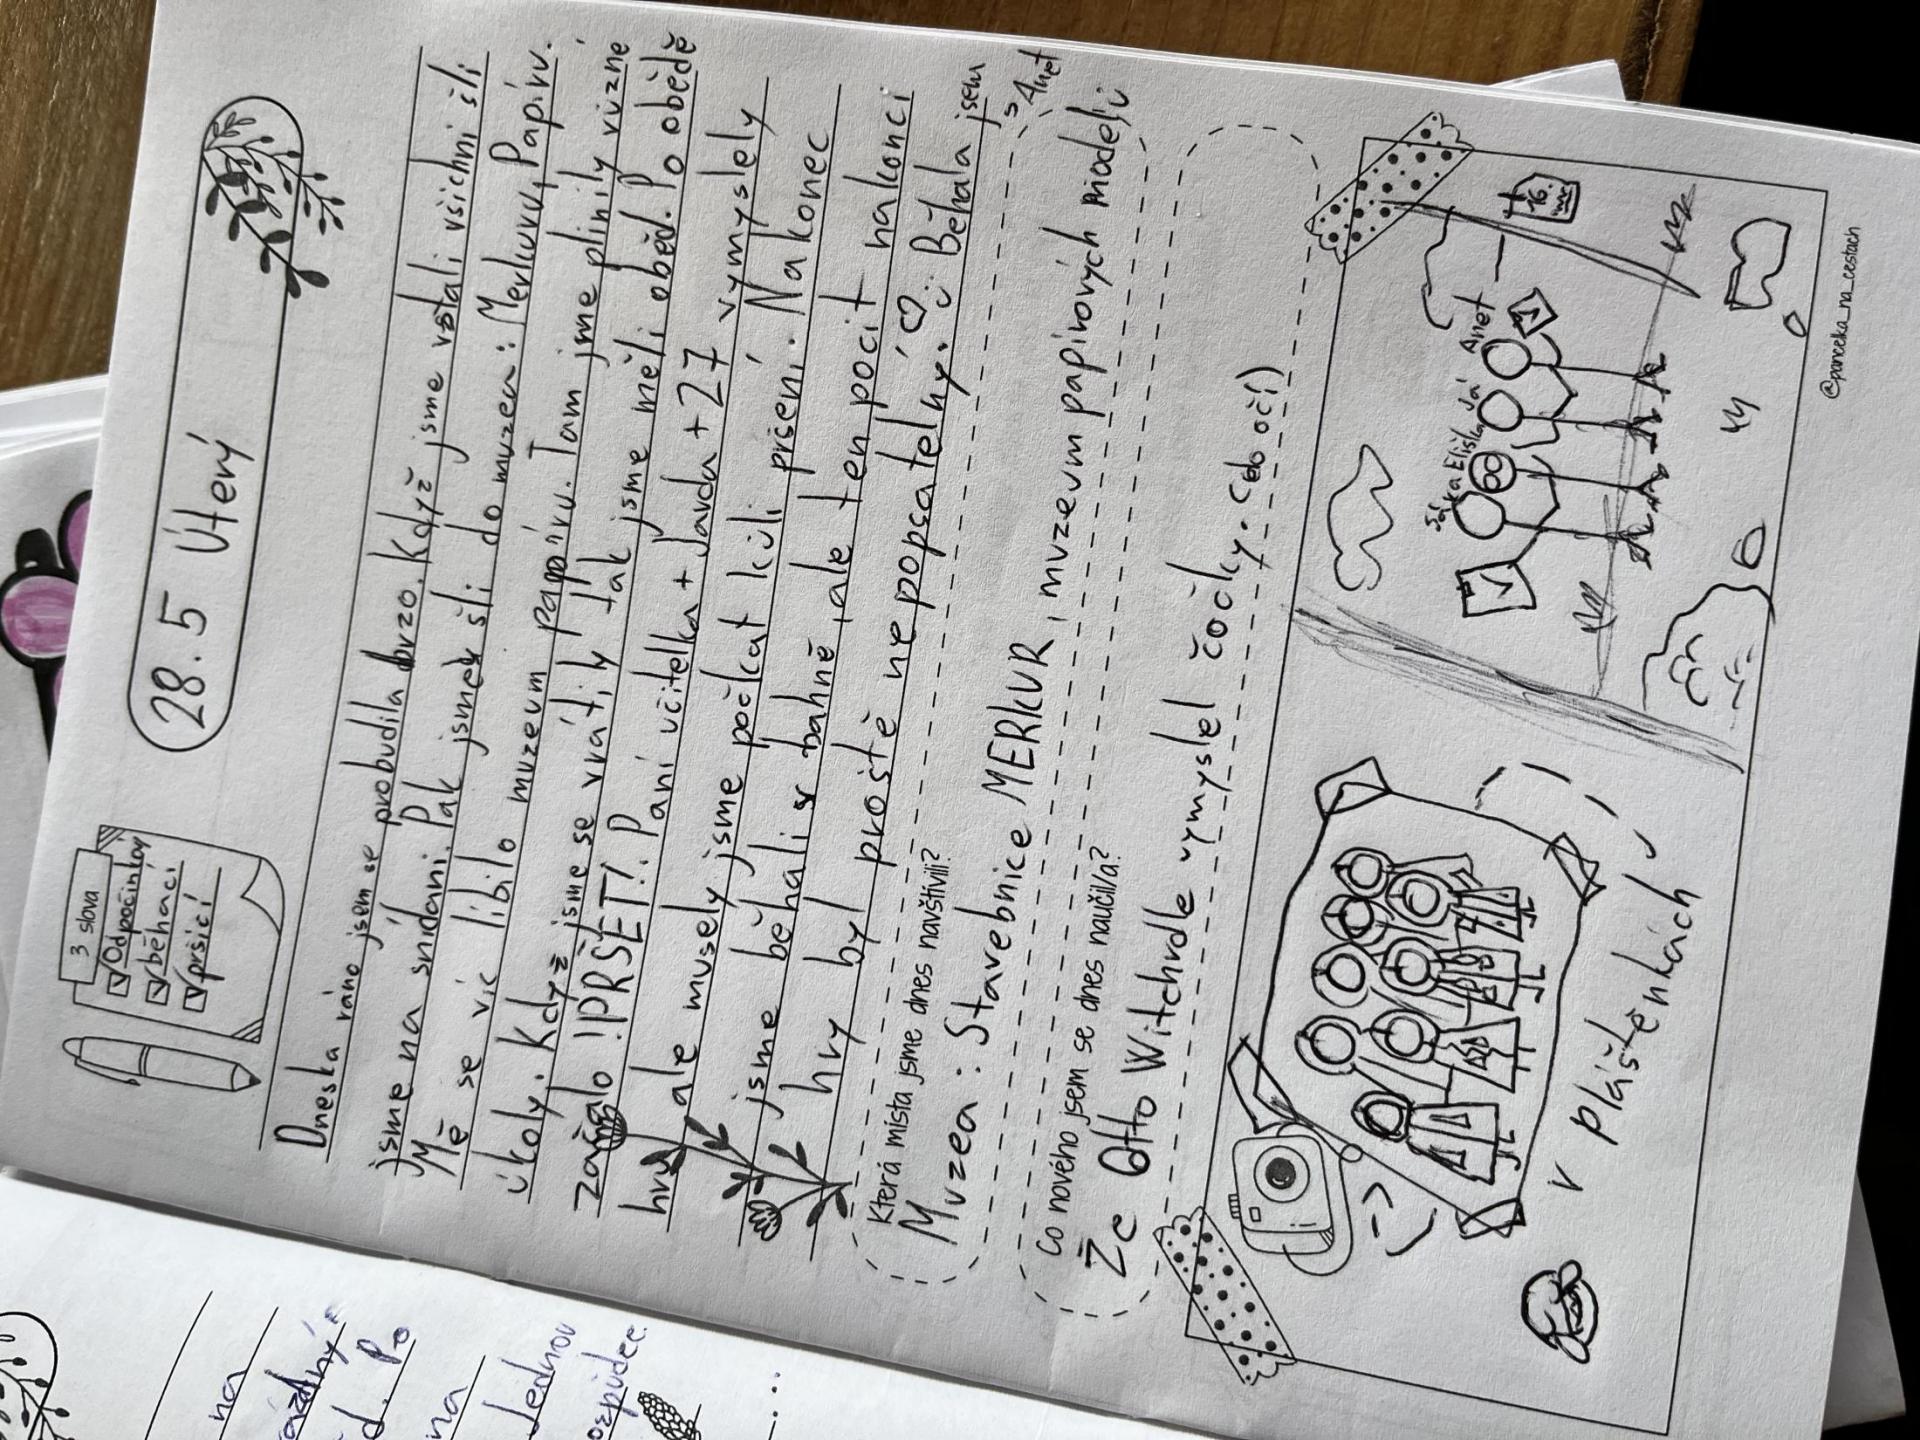 3 slova
Odpočinkový
běhací
pršicí
28.5 Úterý
Dneska ráno jsem se probudila brzo. Když jsme vstali všichni šli
jsme na snídani. Pak jsme šli do muzea: Merkuru, Papíru.
Mě se víc líbilo muzeum papíru. Tam jsme plinily různé
úkoly. Když jsme se vrátily tak jsme měli oběd. Po obědě
začalo !PRŠET!. Paní učitelka + Jarda + 27 vymyslely
hru, ale musely jsme počkat kůli pršení. Nakonec
jsme běhali v bahně, ale ten pocit nakonci
hry byl prostě nepopsatelný. ♡ Běhala jsem
s Anet
Která místa jsme dnes navštívili?
Muzea: Stavebnice MERKUR, muzeum papírových modelů
Co nového jsem se dnes naučil/a?
Že Otto Witchrdle vymyslel čočky. (do očí)
v pláštěnkách
Eliška
Já
Anet
16.
@pancelka_na_cestach
na
d. Po
na
Jednou
...